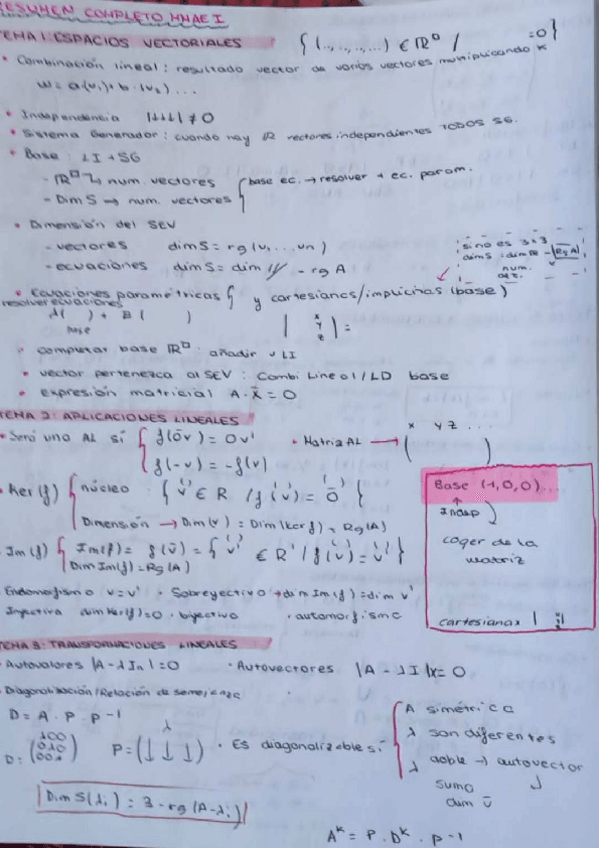 RESUMEN COMPLETO MMAE I
TEMA 1: ESPACIOS VECTORIALES { (.,.,.,...) ∈ ℝ□ / =0}
• Combinación lineal: resultado vector de varios vectores multiplicando K
w = a(v₁)+b·(v₂)...
• Independencia |↓↓↓| ≠ 0
• Sistema Generador: cuando hay ℝ vectores independientes TODOS SG.
• Base: LI + SG
- ℝ□ → num. vectores { base ec. → resolver + ec. param.
- Dim S → num. vectores
• Dimensión del SEV
- vectores dim S = rg (v₁...vn)
- ecuaciones dim S = dim V - rg A
si no es 3x3
dim S = dim ℝ - Rg A
num.
• Ecuaciones paramétricas { y cartesianas/implícitas (base)
resolver ecuaciones
λ( ) + B ( )
base
| x y z | =
• completar base ℝ□: añadir v LI
• vector pertenezca al SEV: Combi Lineal/LD base
• expresión matricial A·X̄ = 0
TEMA 2: APLICACIONES LINEALES
• Será una AL si { f(0v) = 0v'
f(-v) = -f(v)
• Matriz AL → ( )
x y z ...
• Ker(f) { núcleo: { v̄ ∈ R / f(v̄) = 0̄ }
Dimensión → Dim(v) = Dim(Ker f) + Rg(A)
• Im(f) { Im(f) = f(v̄) = { v̄' ∈ R' / f(v̄) = v̄' }
Dim Im(f) = Rg(A)
Endomorfismo v=v' • Sobreyectivo → dim Im(f) = dim v'
Inyectiva dim Ker(f)=0 • biyectivo • automorfismo
Base (-1,0,0)...
↑
Indep
coger de la
matriz
cartesianas | |
TEMA 3: TRANSFORMACIONES LINEALES
• Autovalores |A - λ In| = 0 • Autovectores |A - λI|x = 0
• Diagonalización/Relación de semejanza
D = A · P · P⁻¹
D: (λ00 0λ0 00λ) P = (↓ ↓ ↓) • Es diagonalizable si
λ
{ A simétrica
λ son diferentes
λ doble → autovector
suma
dim v̄
Dim S(λᵢ) = 3 - rg (A - λᵢ)
Aᴷ = P · Dᴷ · P⁻¹